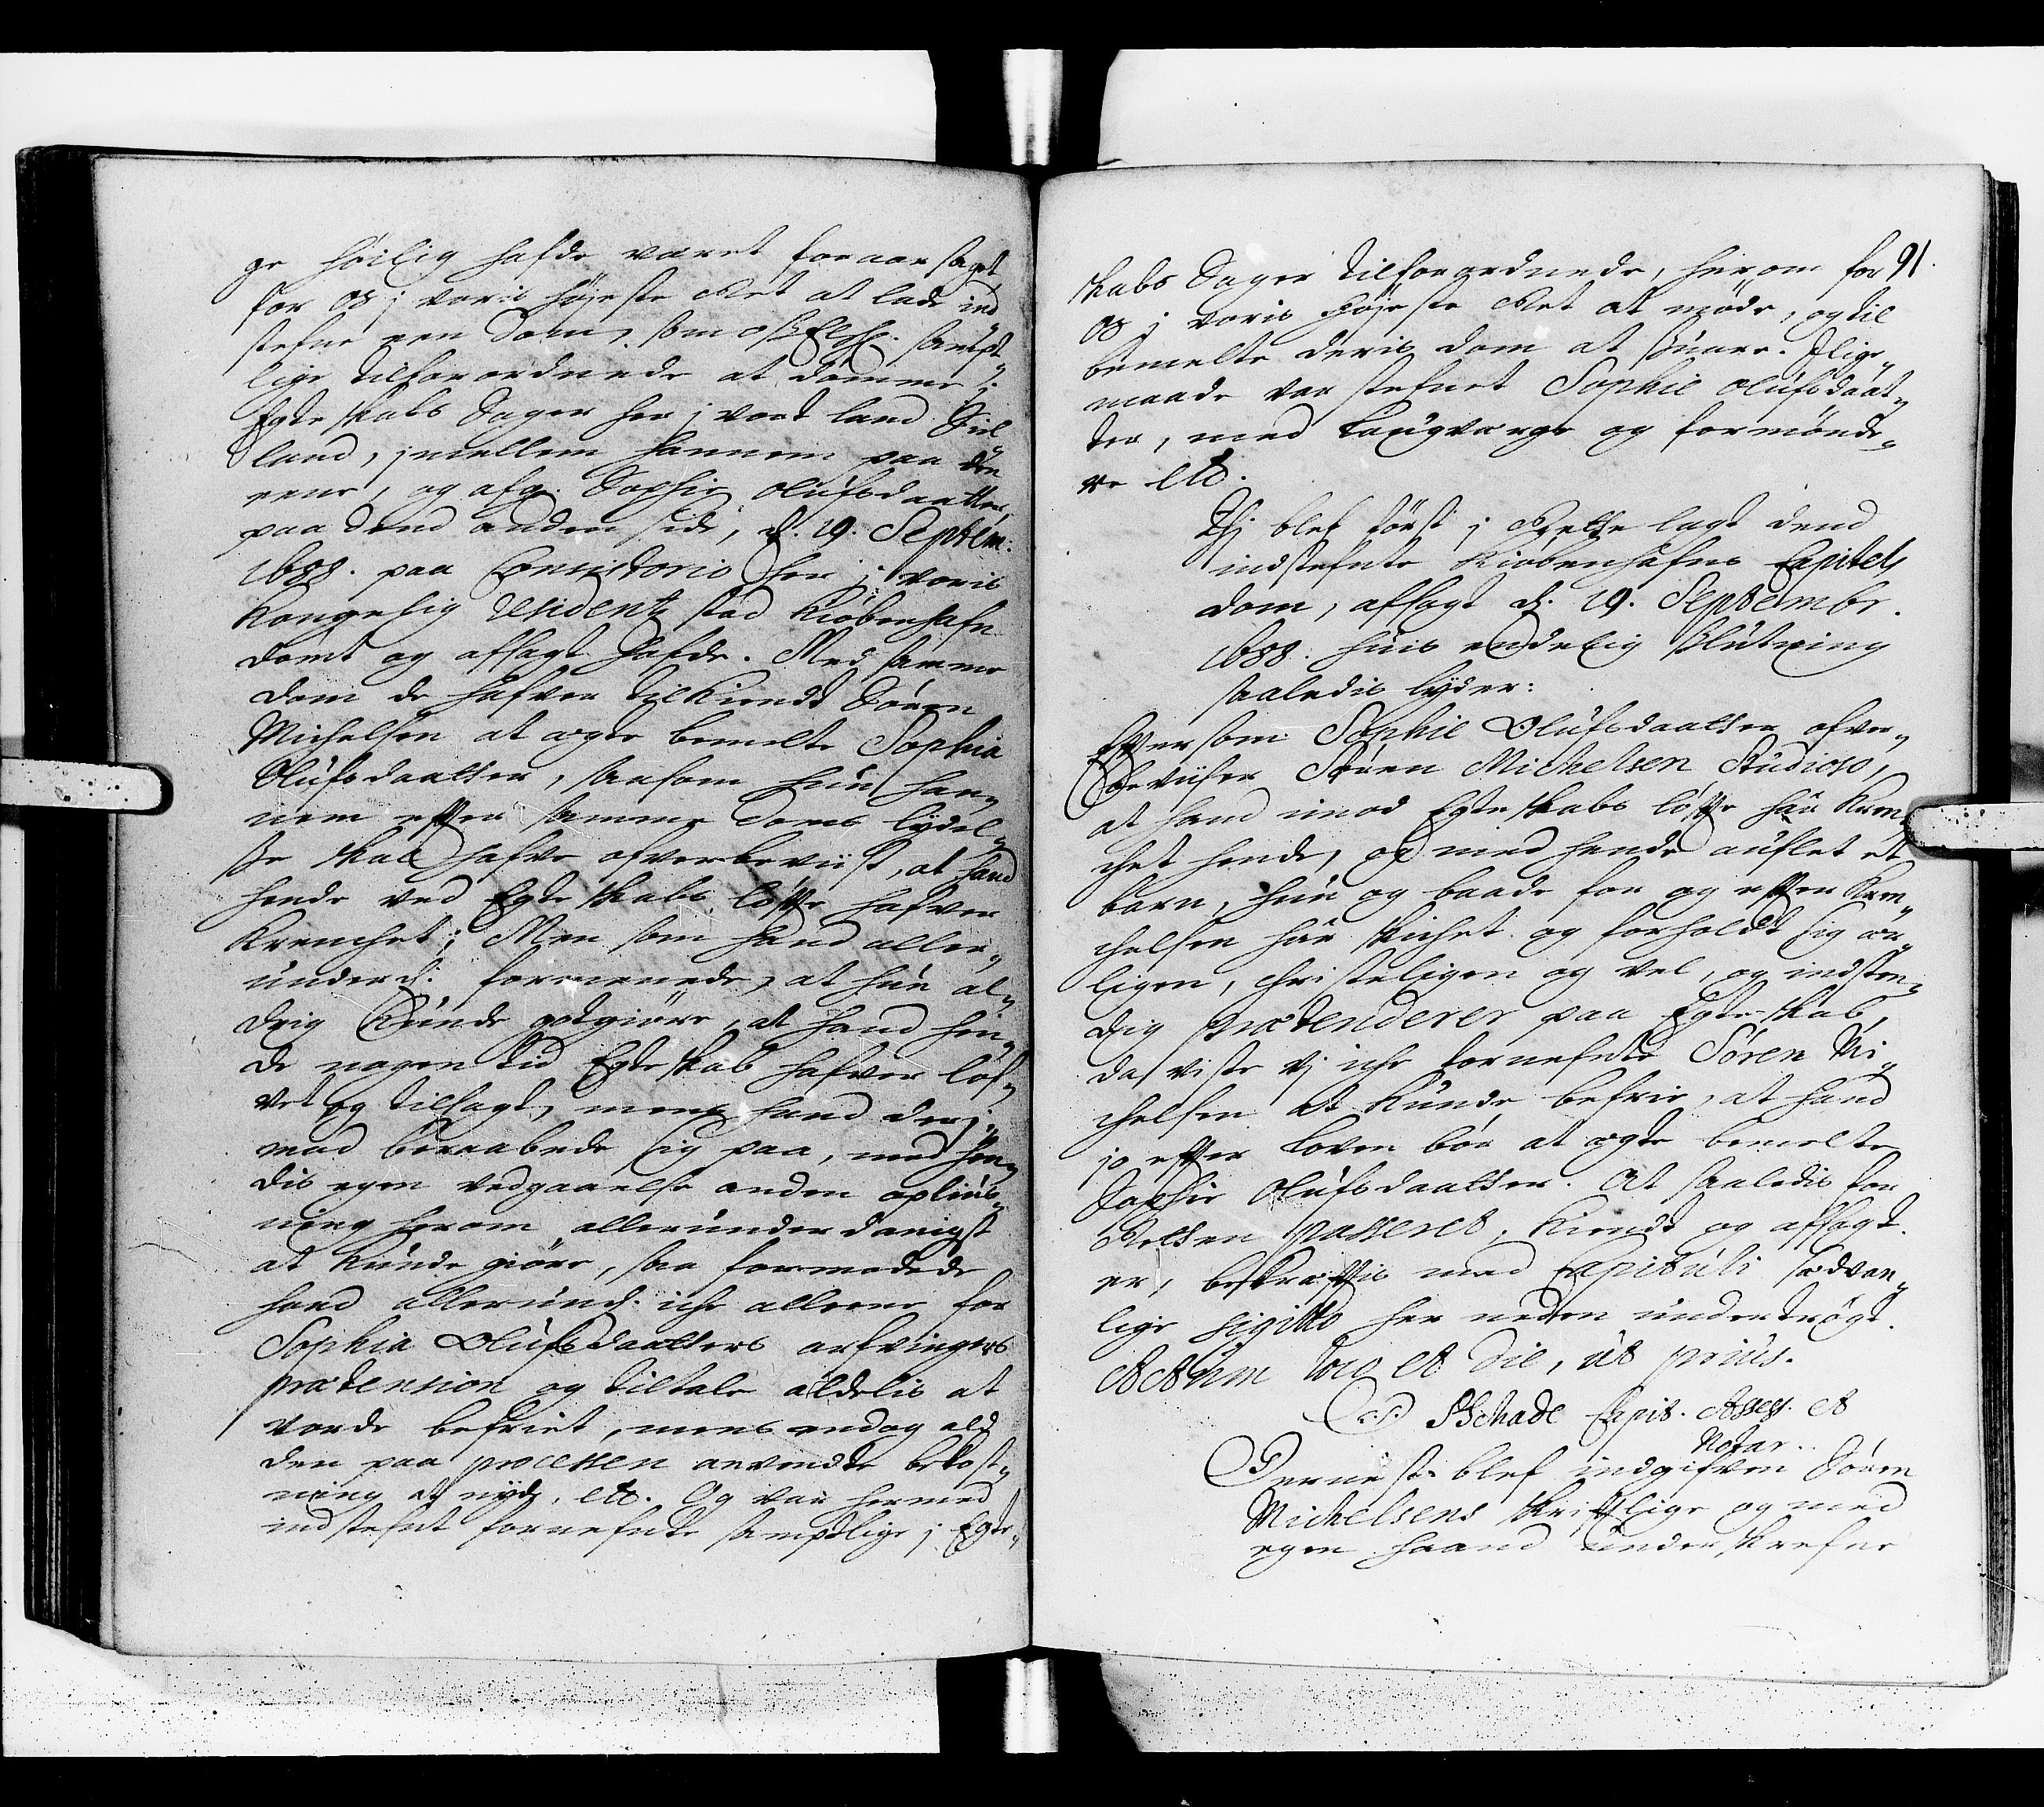 ge høilig hafde været foraarsaget
for os j voris høyeste Ret at lade ind
stefne een Dom, som os Elschl. sampt„
lige tilforordnede at dømme i
Egteskabs Sager her j vort land Siel„
land, jmellem hannem paa den
eene, og afg. Sophie Olufsdaatter,
paa dend anden side, d. 19. Septem:
1688. paa Consistorio her j voris
Kongelig Residentz stad Kiøbenhafn
dømt og afsagt hafde. Med samme
dom de hafver tilkiendt Søren
Michelsen at ægte bemelte Sophia
Olufsdaatter, saasom hun han„
nem efter samme doms lydel„
se skal hafve ofverbeviist, at hand
hende ved Egteskabs løfte hafver
Krenchet; Men som hand aller„
underd. formeenede, at hun al„
drig Kunde godtgiøre, at hand hen„
de nogen tid Egteskab hafver lof„
vet og tilsagt, mens hand derj„
mod beraabede sig paa, med hen„
dis egen vedgaaelse anden oplius„
ning herom allerunderdanigst
at Kunde giøre, saa formodede
hand allerund. iche alleene for
Sophia Olufsdaatters arfvingers
prætension og tiltale aldelis at
vorde befriet, mens endog ald
den paa processen anvendte bekost„
ning at nyde, etc. Og var hermed
indstefnt fornefnte samptlige j Egte„
91.
skabs Sager tilforordnede, herom for
os j voris høyeste Ret at møde, og til
bemelte deris dom at suare. Jlige„
maade var stefnet Sophie Olufsdaat„
ter, med Laugverge og formønde„
re etc.
Thj blef først j Rette lagt dend
indstefnte Kiøbenhafns Capitels
dom, afsagt d. 19. Septembr.
1688. huis endelig slutning
saaledis lyder:
Efftersom Sophie Olufsdaatter ofver„
beviiser Søren Michelsen Studioso,
at hand imod Egteskabs løffte har Kren„
chet hende, og med hende auflet et
barn, hun og baade for og efter Kren„
chelsen har skichet og forholdt sig ær„
ligen, christeligen og vel, og indsten„
dig prætenderer paa Egteskab,
da viste vj iche fornefnte Søren Mi„
chelsen at Kunde befrie, at hand
jo efter loven bør at ægte bemelte
Sophie Olufsdaatter. At saaledis for
Retten passeret, Kiendt og afsagt
er, bekræfftis med Capituli sædvan„
lige Sigillo her neden undertrøgt.
Actum loco et die, ut prius.
(L.S.) Schade Capit. Assess. et
Notar.
Dernest blef indgifven Søren
Michelsens skrifftlige og med
egen haand underskrefne